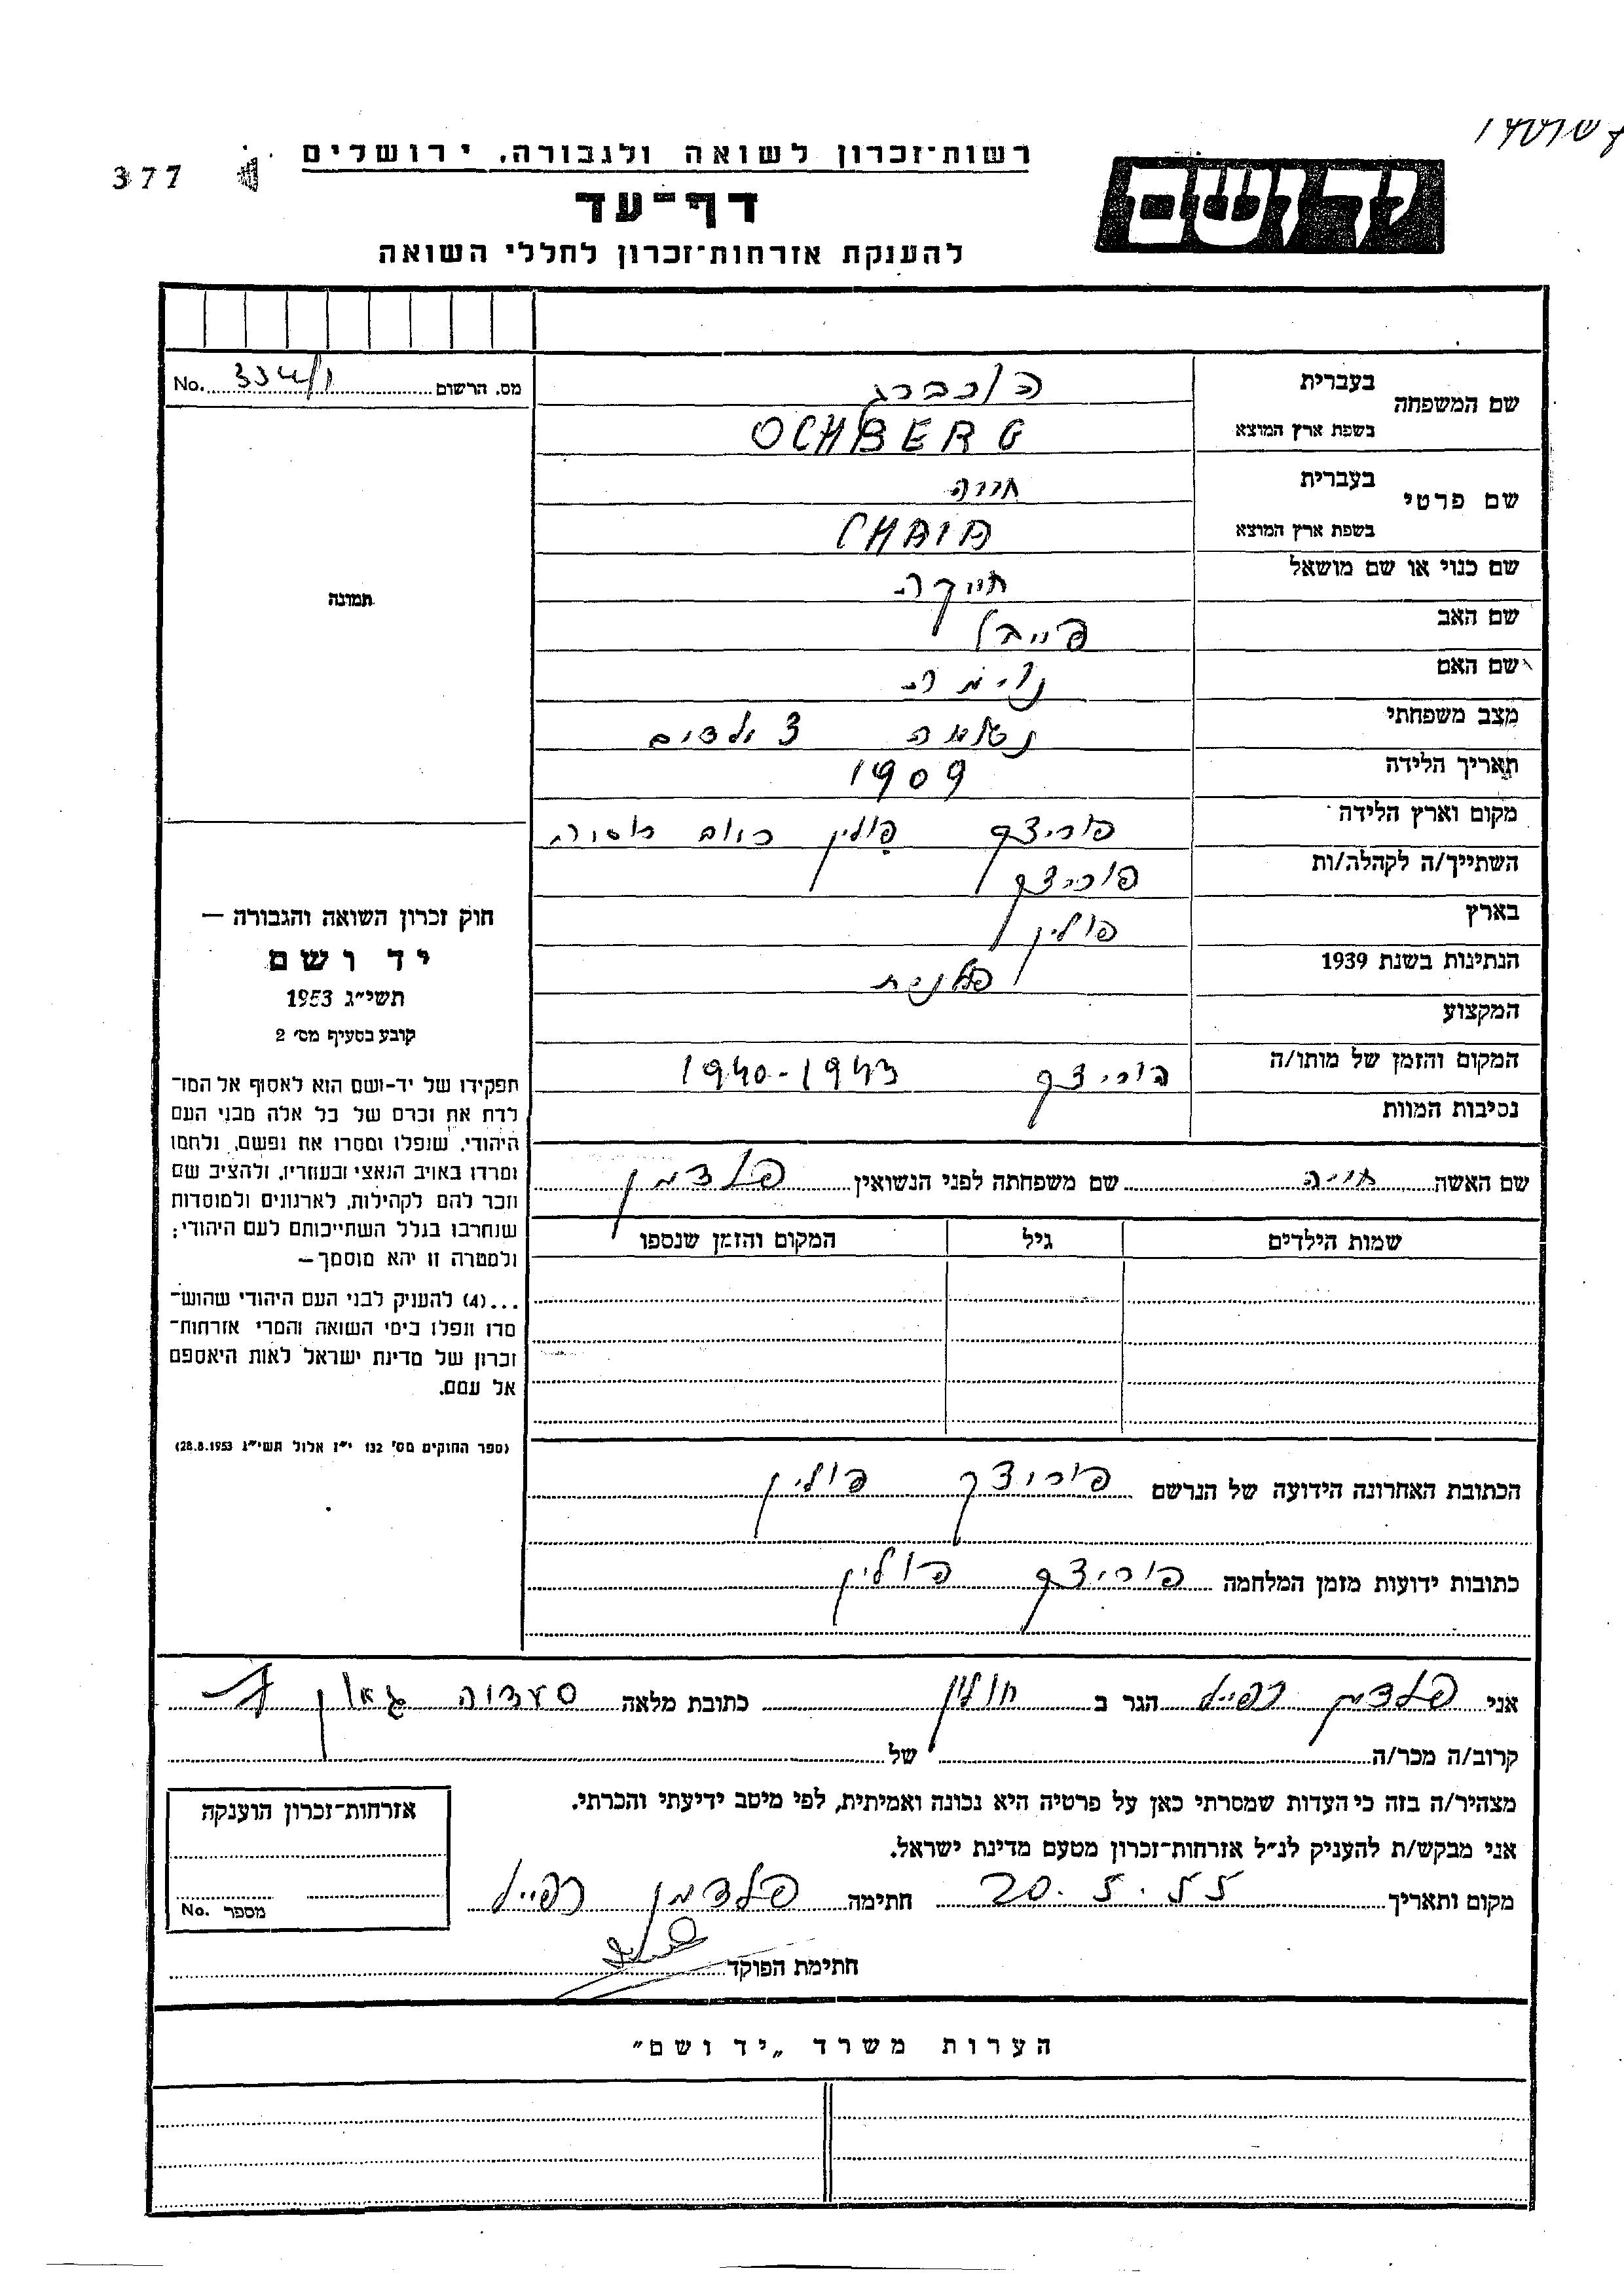 רשות־זכרון לשואה ולגבורה, ירושלים
377
דף־עד
ידושם
להענקת אזרחות־זכרון לחללי השואה
מס. הרשום No.
שם המשפחה
בעברית
בשפת ארץ המוצא OCHBERG
שם פרטי
בעברית חייה
בשפת ארץ המוצא CHAIA
שם כנוי או שם מושאל חייקה
שם האב פייבל
שם האם
מצב משפחתי נשואה 3 ילדים
תאריך הלידה 1909
מקום וארץ הלידה פוריצק פולין
השתייך/ה לקהלה/ות פוריצק
בארץ פולין
הנתינות בשנת 1939 פולנית
המקצוע
המקום והזמן של מותו/ה פוריצק 1940-1943
נסיבות המוות
שם האשה חייה שם משפחתה לפני הנשואין פלדמן
שמות הילדים גיל המקום והזמן שנספו
תמונה
חוק זכרון השואה והגבורה —
יד ושם
תשי״ג 1953
קובע בסעיף מס׳ 2
תפקידו של יד־ושם הוא לאסוף אל המו־
לדת את זכרם של כל אלה מבני העם
היהודי, שנפלו ומסרו את נפשם, נלחמו
ומרדו באויב הנאצי ובעוזריו, ולהציב שם
וזכר להם לקהילות, לארגונים ולמוסדות
שנחרבו בגלל השתייכותם לעם היהודי;
ולמטרה זו יהא מוסמך—
...(4) להעניק לבני העם היהודי שהוש־
מדו ונפלו בימי השואה והמרי אזרחות־
זכרון של מדינת ישראל לאות היאספם
אל עמם.
(ספר החוקים מס׳ 132 י״ז אלול תשי״ג 28.8.1953)
הכתובת האחרונה הידועה של הנרשם פוריצק פולין
כתובות ידועות מזמן המלחמה פוריצק פולין
אני פלדמן רפייל הגר ב חולין כתובת מלאה סעדיה גאון 7
קרוב/ה מכר/ה של
מצהיר/ה בזה כי העדות שמסרתי כאן על פרטיה היא נכונה ואמיתית, לפי מיטב ידיעתי והכרתי.
אני מבקש/ת להעניק לנ״ל אזרחות־זכרון מטעם מדינת ישראל.
מקום ותאריך 20.5.55 חתימה פלדמן רפייל
חתימת הפוקד
אזרחות־זכרון הוענקה
מספר No.
הערות משרד „יד ושם״